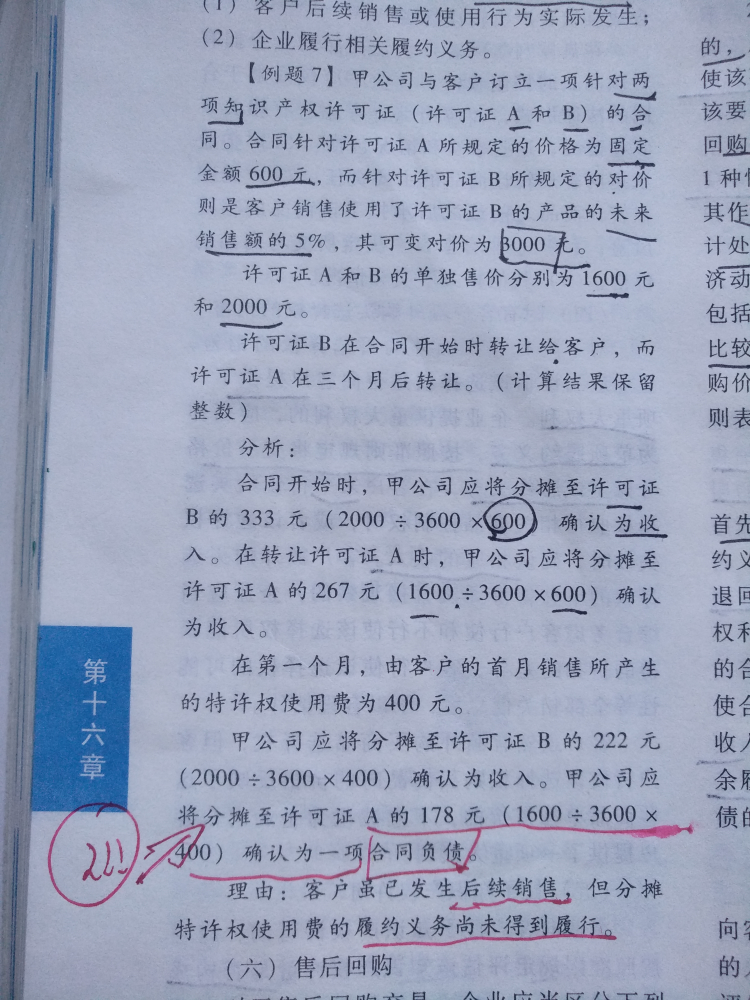 (1) 客户后续销售或使用行为实际发生；
(2) 企业履行相关履约义务。
【例题7】甲公司与客户订立一项针对两
项知识产权许可证（许可证 A 和 B）的合
同。合同针对许可证 A 所规定的价格为固定
金额 600 元，而针对许可证 B 所规定的对价
则是客户销售使用了许可证 B 的产品的未来
销售额的 5%，其可变对价为 3000 元。
许可证 A 和 B 的单独售价分别为 1600 元
和 2000 元。
许可证 B 在合同开始时转让给客户，而
许可证 A 在三个月后转让。（计算结果保留
整数）
分析：
合同开始时，甲公司应将分摊至许可证
B 的 333 元（2000÷3600×600）确认为收
入。在转让许可证 A 时，甲公司应将分摊至
许可证 A 的 267 元（1600÷3600×600）确认
为收入。
在第一个月，由客户的首月销售所产生
的特许权使用费为 400 元。
甲公司应将分摊至许可证 B 的 222 元
（2000÷3600×400）确认为收入。甲公司应
将分摊至许可证 A 的 178 元（1600÷3600×
400）确认为一项合同负债。
理由：客户虽已发生后续销售，但分摊
特许权使用费的履约义务尚未得到履行。
（六）售后回购
第十六章
的，
使该
该要
回购
1 种
其作
计处
济动
包括
比较
购价
则表
首先
约义
退回
权利
的合
使合
收入
余履
债的
向客
的